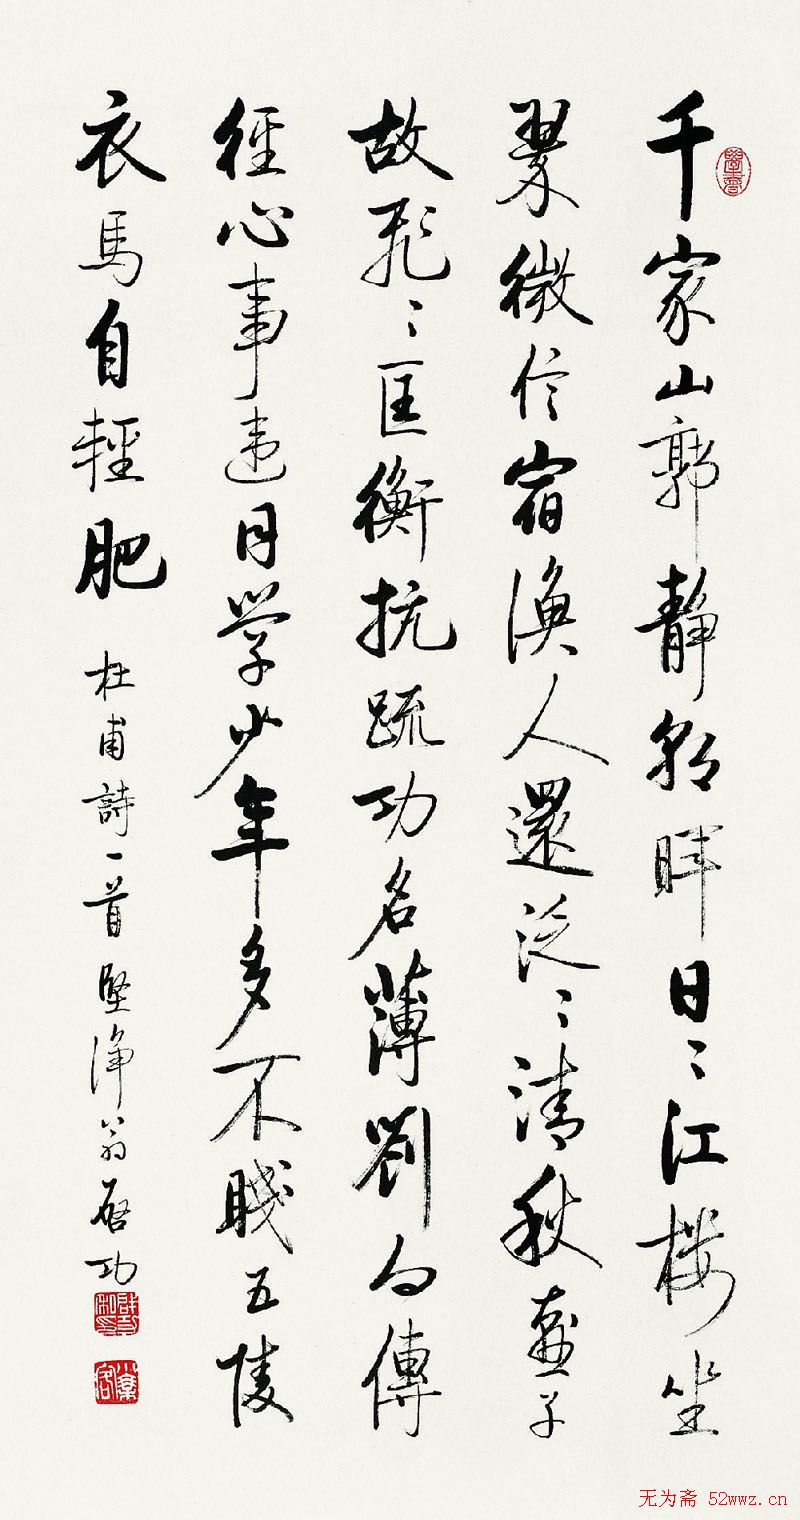 千家山郭靜朝暉日〻江樓坐
翠微信宿漁人還泛〻清秋燕子
故飛〻匡衡抗疏功名薄劉向傳
經心事違同學少年多不賤五陵
衣馬自輕肥 杜甫詩一首 堅淨翁啓功
无为斋 52wwz.cn